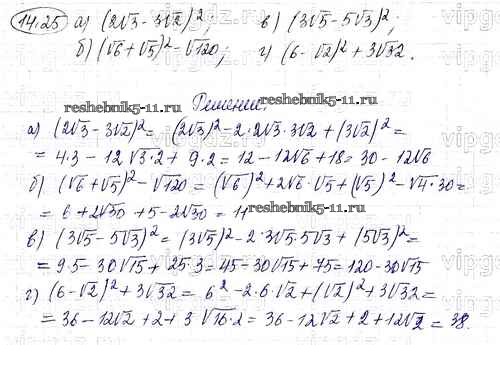 14.25 а) (2√3 - 3√2)²; в) (3√5 - 5√3)²;
б) (√6 + √5)² - √120; г) (6 - √2)² + 3√32.
reshebnik5-11.ru
reshebnik5-11.ru
Решение:
а) (2√3 - 3√2)² = (2√3)² - 2·2√3·3√2 + (3√2)² =
= 4·3 - 12√3·2 + 9·2 = 12 - 12√6 + 18 = 30 - 12√6
б) (√6 + √5)² - √120 = (√6)² + 2√6·√5 + (√5)² - √4·30 =
= 6 + 2√30 + 5 - 2√30 = 11
reshebnik5-11.ru
в) (3√5 - 5√3)² = (3√5)² - 2·3√5·5√3 + (5√3)² =
= 9·5 - 30√15 + 25·3 = 45 - 30√15 + 75 = 120 - 30√15
г) (6 - √2)² + 3√32 = 6² - 2·6·√2 + (√2)² + 3√32 =
= 36 - 12√2 + 2 + 3√16·2 = 36 - 12√2 + 2 + 12√2 = 38.